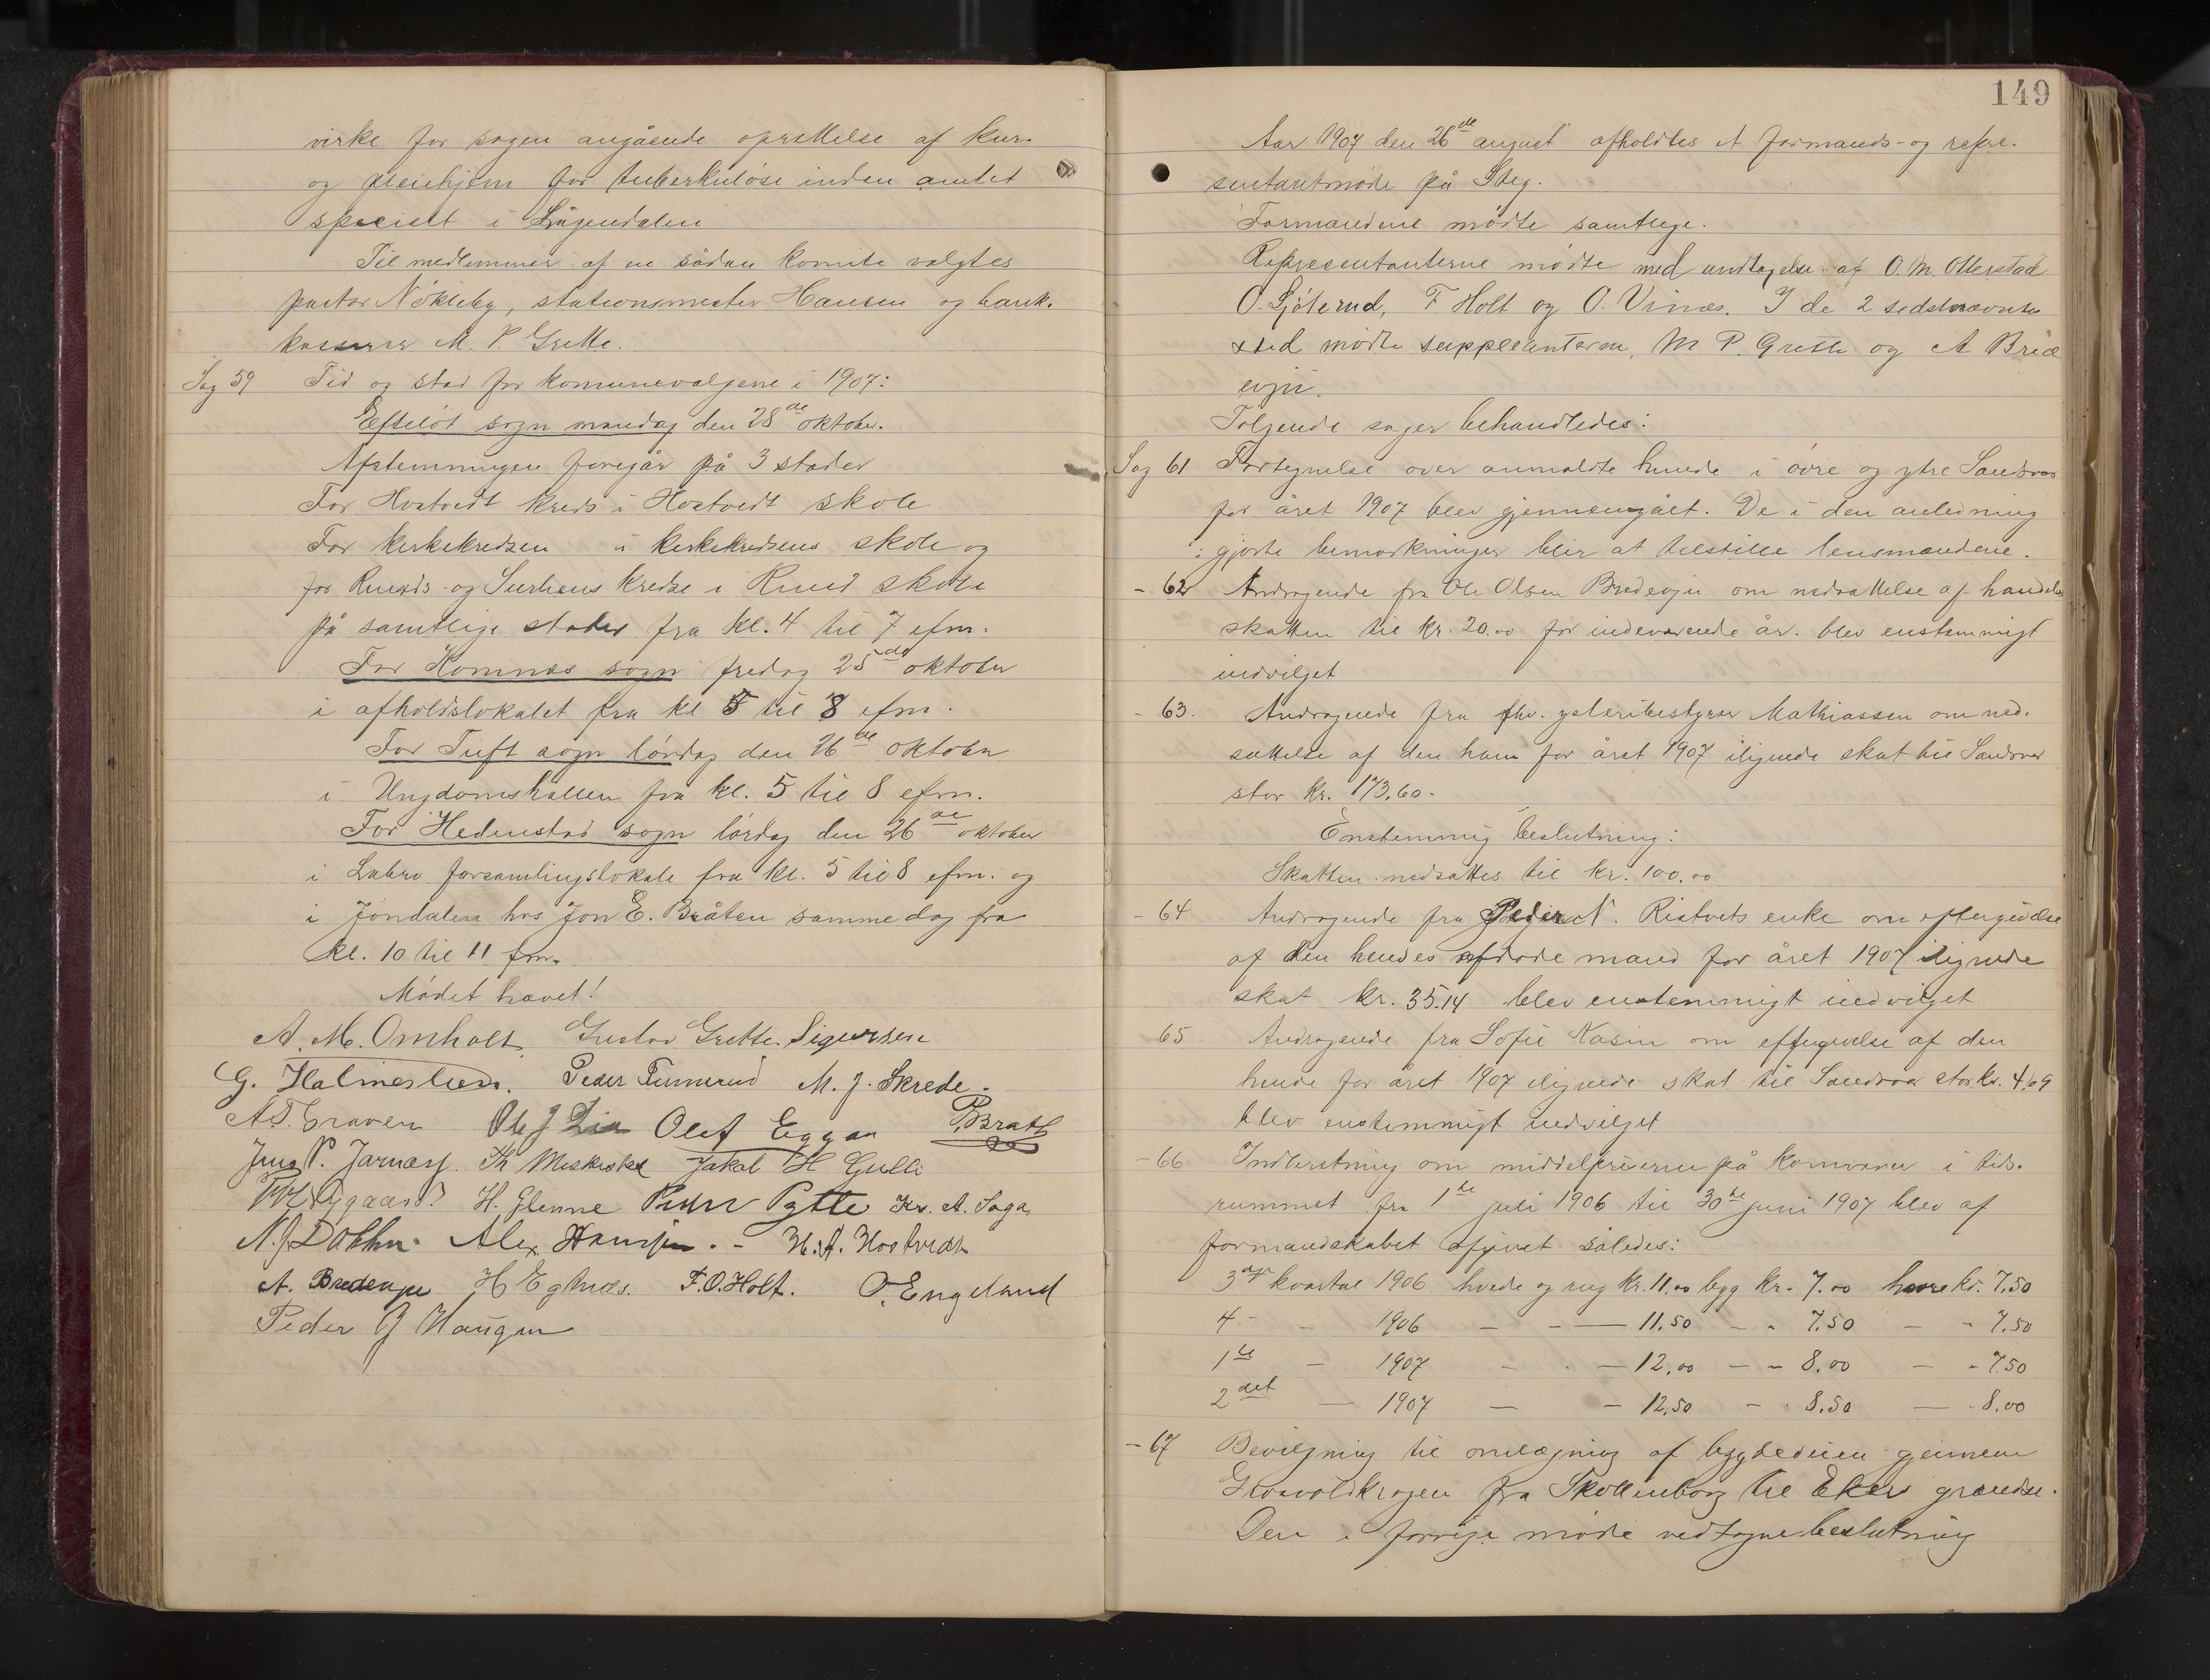 virke for sagen angående oprettelse af kur-
og pleiehjem for tuberkuløse inden amtet
specielt i Lågendalen
Til medlemmer af en sådan komite valgtes
pastor Nökleby, stationsmester Hansen og bank-
kasserer M. P. Grette.
Sag 59 Tid og sted for komunevalgene i 1907:
Efteløt sogn mandag den 28de oktober.
Afstemningen foregår på 3 steder
For Hostvedt kreds i Hostvedt skole
For kirkekredsen i kirkekredsens skole og
for Ruuds- og kredse i Ruud skole
på samtlige steder fra kl. 4 til 7 efm.
For Komnæs sogn fredag 25de oktober
i afholdslokalet fra kl 5 til 8 efm.
For Tuft sogn lørdag den 26de oktober
i Ungdomshallen fra kl. 5 til 8 efm.
For Hedenstad sogn lørdag den 26de oktober
i Labro forsamlingslokale fra kl. 5 til 8 efm. og
i Jondalen hos Jon E. Bråten samme dag fra
kl. 10 til 11 fm.
Mødet hævet!
A. M. Omholt. Gustav Grette. Sigurdsen
G. Halmeslien. Peder M. J. Skrede.
A. T. Graven Ole J Lia Olef Eggar P. Bratt
Jens P. Jarnæss. Th Meskestad Jakob H Gulli
H. Glenne Peder Pytte Kr. A. Saga
N. J. Dokken. Alex Hansen. - H. A. Hostvedt
A. Bredevgje H Egtnæs. F. O. Holt. O. Engeland
Peder G Haugen
149
Aar 1907 den 26de august afholdtes et formands- og repre-
sentantmøde på Steg.
Formændene mødte samtlige.
Representanterne mødte med undtagelse af O. M. Otterstad
O. Sjöterud, F Holt og O. Vinæs. I de 2 sidstnævntes
sted mødte suppleanterne, M P. Grette og A Bred
evgji.
Følgende sager behandledes:
Sag 61 Fortegnelse over anmeldte hunde i øvre og ytre Sandsvær
for året 1907 blev gjennemgået. De i den anledning
gjorte bemærkninger blir at tilstille lensmændene.
- 62 Andragende fra Ole Olsen Bredevgji om nedsættelse af handels
skatten til kr. 20.00 for indeværende år. blev enstemmigt
indvilget
- 63. Andragende fra fhv. ysteribestyrer Mathiassen om ned-
sættelse af den ham for året 1907 ilignede skat til Sandsvær
stor kr. 173.60.
Enstemmig beslutning:
Skatten nedsættes til kr. 100.00
- 64 Andragende fra Peder N. Ristvets enke om eftergivelse
af den hendes afdøde mand for året 1907 ilignede
skat kr. 35.14 blev enstemmigt indvilget
65 Andragende fra Sofie Kasin om eftergivelse af den
hende for året 1907 ilignede skat til Sandsvær stor kr. 4.69
blev enstemmigt indvilget
- 66 Indberetning om middelpriserne på kornvarer i tids-
rummet fra 1te juli 1906 til 30te juni 1907 blev af
formandskabet afgivet således:
3die kvartal 1906 hvede og rug kr. 11.00 byg kr. 7.00 havre kr. 7.50
4 - - 1906 - - - 11.50 - - 7.50 - - 7.50
1te - 1907 - - - 12.00 - - 8.00 - - 7.50
2det - 1907 - - 12.50 - - 8.50 - - 8.00
- 67 Bevilgning til omlægning af bygdeveien gjennem
fra Skollenborg til Eker grændse.
Den i forrige møde vedtagne beslutning